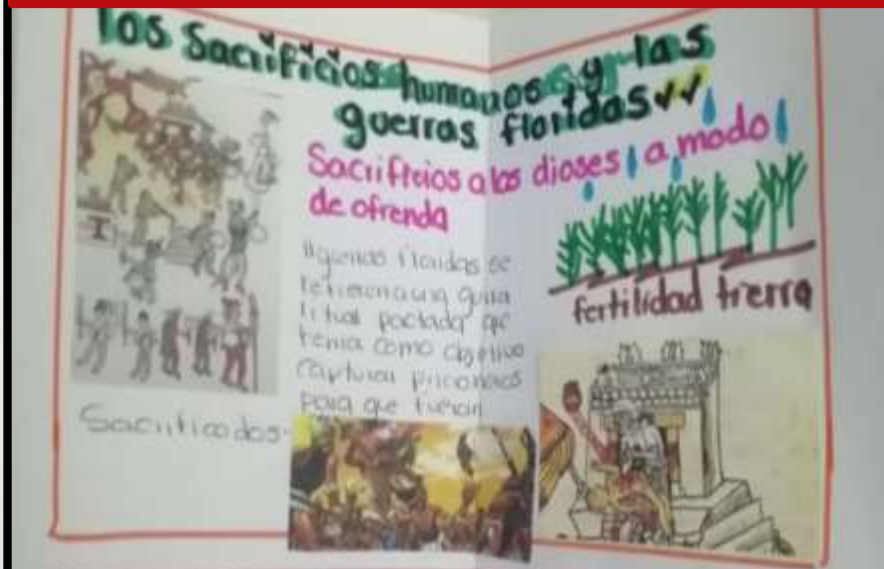 los Sacrificios humanos y las
guerras floridas
Sacrificios a los dioses, a modo
de ofrenda
"guerras floridas se
refieren a una guerra
ritual pactada que
tenia como objetivo
capturar pricioneros
para que fueran
Sacrificados.
fertilidad tierra